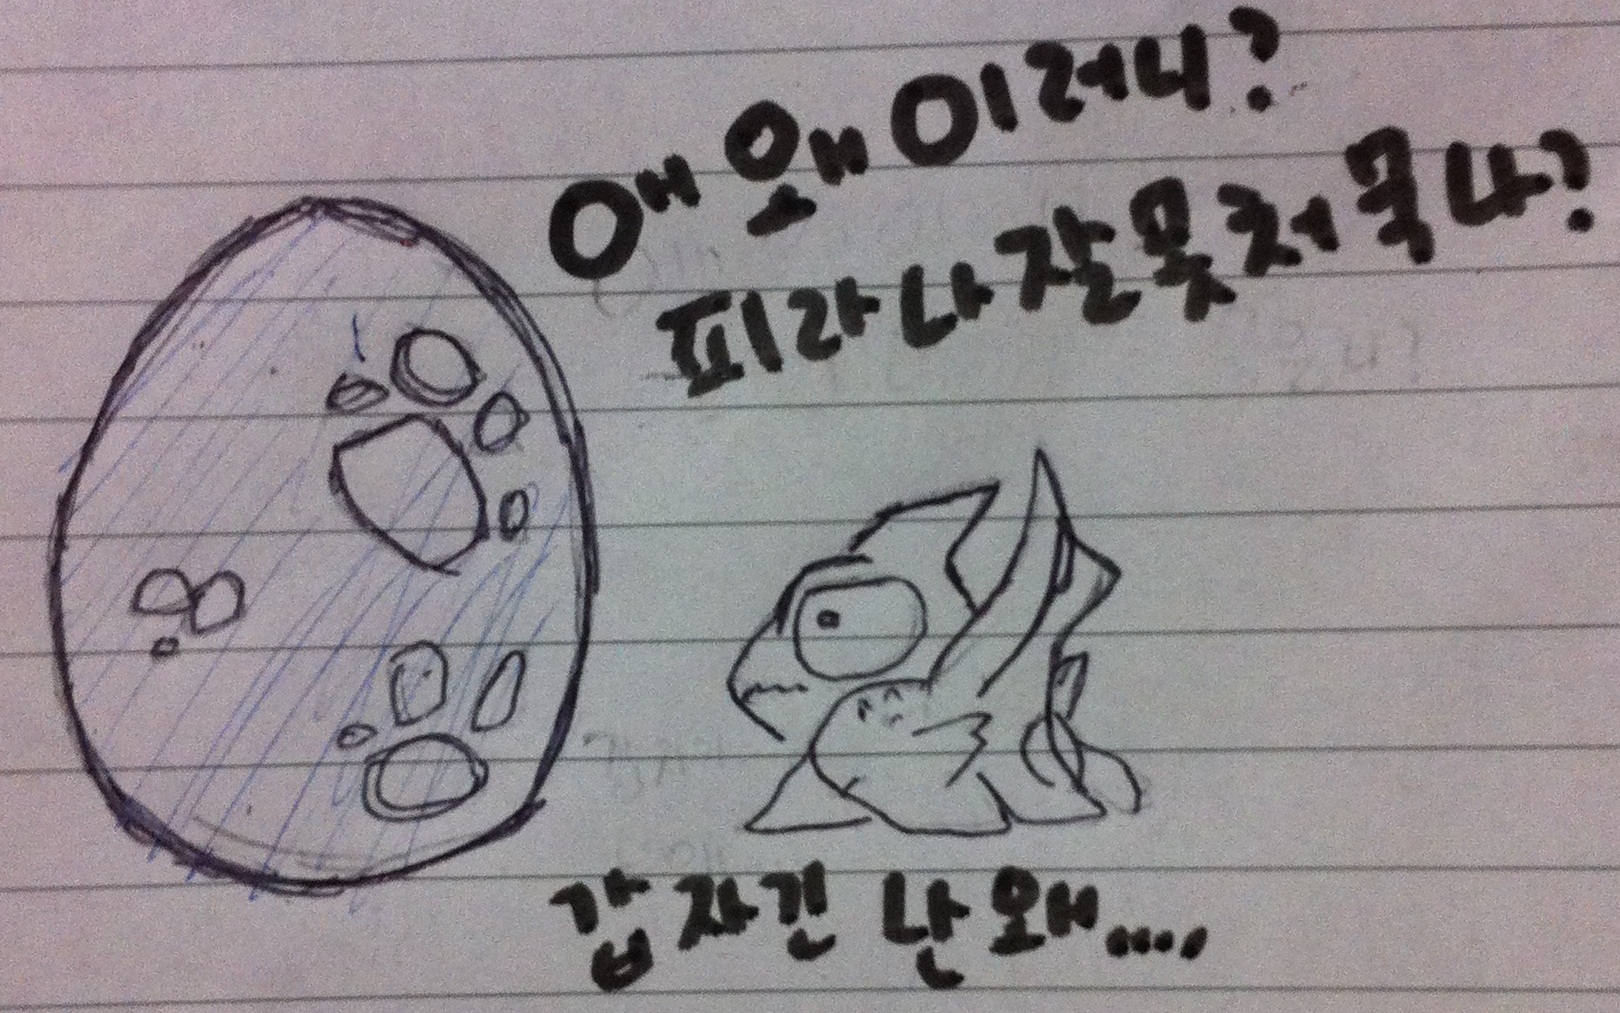 애 왜 이러니?
피라나 잘못 처 묵나?
갑자긴 난 왜....